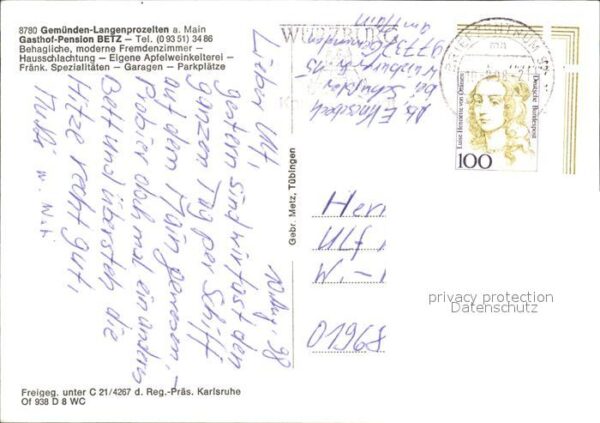 8780 Gemünden-Langenprozelten a. Main
Gasthof-Pension BETZ – Tel. (0 93 51) 34 86
Behagliche, moderne Fremdenzimmer –
Hausschlachtung – Eigene Apfelweinkelterei –
Fränk. Spezialitäten – Garagen – Parkplätze
Lieber Ulf,
gestern sind wir fast den
ganzen Tag per Schiff
auf dem Main gewesen, –
Probier doch mal ein anderes
Bett und überstehn die
Hitze recht gut,
Freigeg. unter C 21/4267 d. Reg.-Präs. Karlsruhe
Of 938 D 8 WC
Gebr. Metz, Tübingen
Abs. E.
bei
Würzburger
97737 Gemünden
am Main
WÜRZBURG
Luise Henriette von Oranien
Deutsche Bundespost
100
Herr
Ulf
W.
01968
privacy protection
Datenschutz